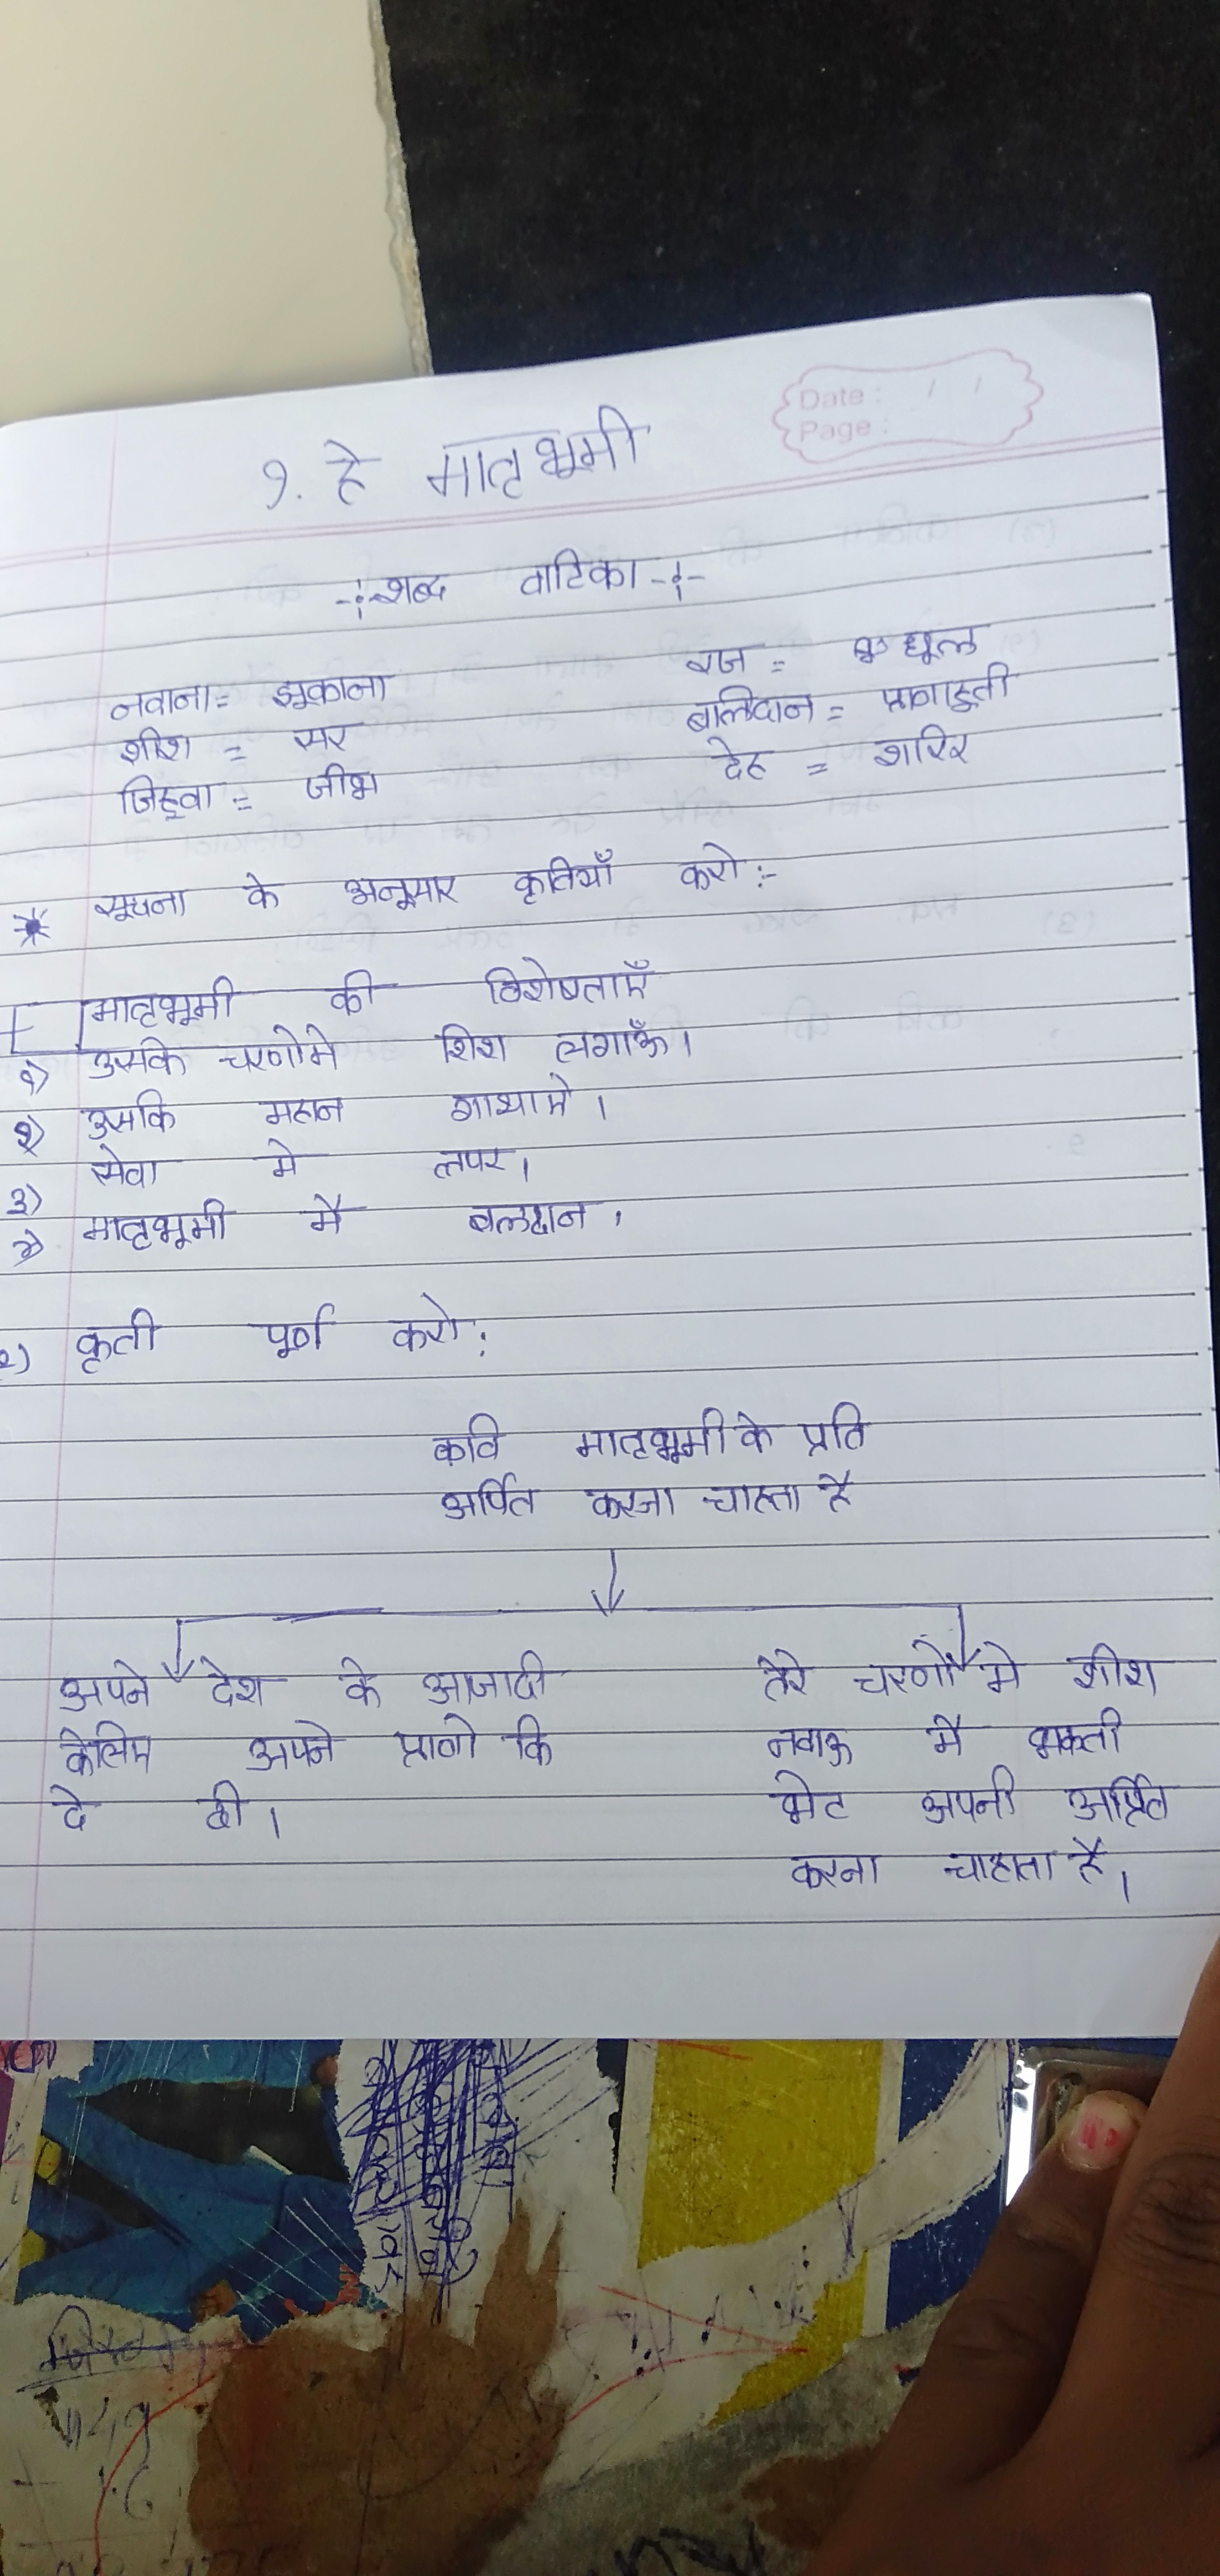 Date : / /
Page :
१. हे मातृभूमी
-:-शब्द वाटिका-:-
नवाना= झूकाना
शीश = सर
जिह्वा = जीभ
रज = धूल
बलिदान = प्राणाहुती
देह = शरिर
* सूचना के अनूसार कृतियाँ करो:-
मातृभूमी की विशेषताएँ
१) उसकि चरणोमे शिश लगाऊँ।
२) उसकि महान गाथामे।
३) सेवा मे तपर।
४) मातृभूमी मै बलदान।
२) कृती पूर्ण करो:
कवि मातृभूमी के प्रति
अर्पित करना चाहता है
अपने देश के आजादी
केलिए अपने प्राणो कि
दे दी।
तेरे चरणों मे शीश
नवाऊ मै भक्ती
भेट अपनी अर्प्रित
करना चाहाता है।